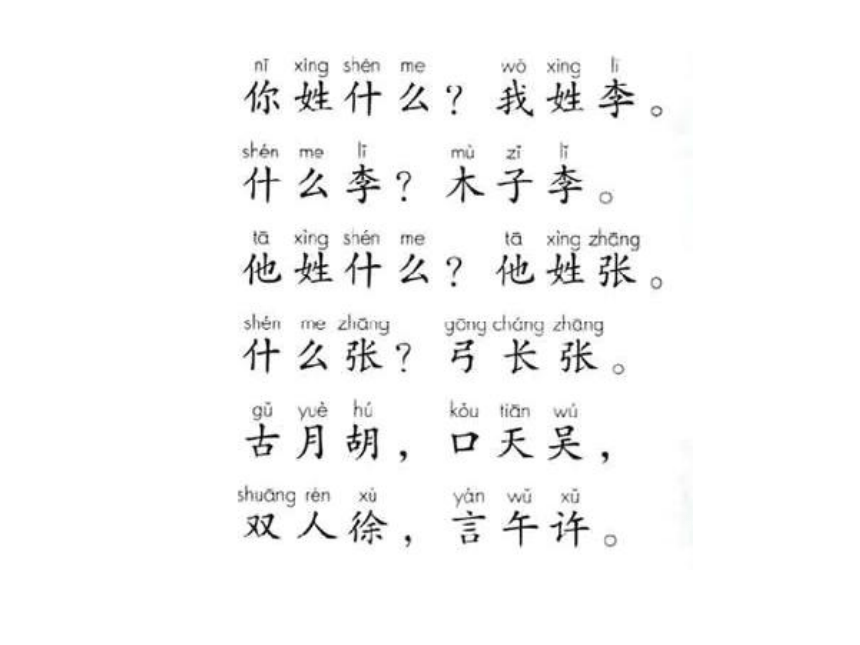 nǐ xìng shén me wǒ xìng lǐ
你姓什么？我姓李。
shén me lǐ mù zǐ lǐ
什么李？木子李。
tā xìng shén me tā xìng zhāng
他姓什么？他姓张。
shén me zhāng gōng cháng zhāng
什么张？弓长张。
gǔ yuè hú kǒu tiān wú
古月胡，口天吴，
shuāng rén xú yán wǔ xǔ
双人徐，言午许。